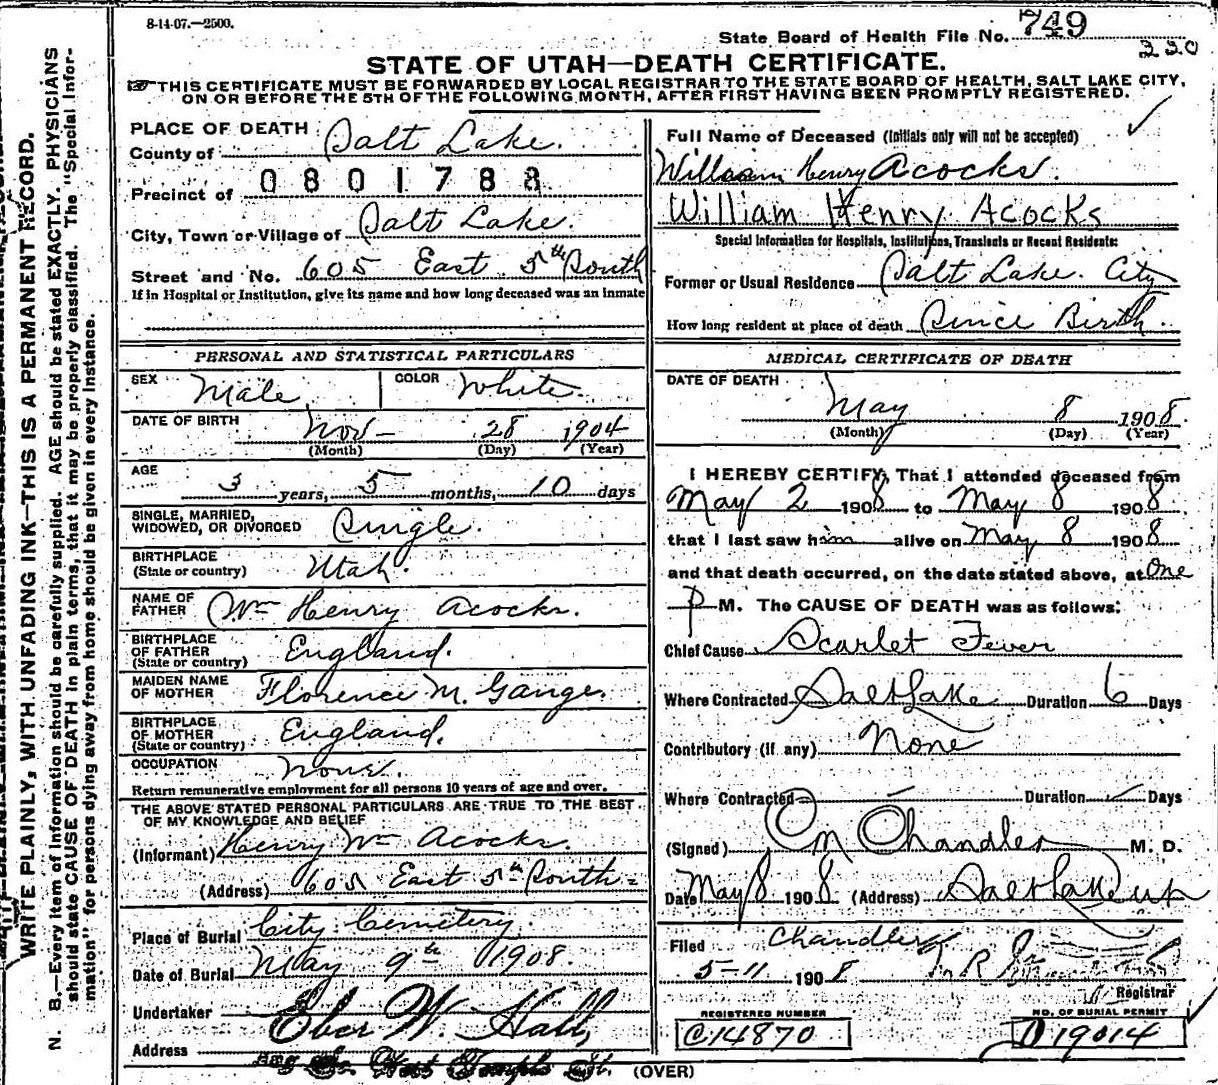 8-14-07.—2500.
State Board of Health File No. 749
220
STATE OF UTAH—DEATH CERTIFICATE.
THIS CERTIFICATE MUST BE FORWARDED BY LOCAL REGISTRAR TO THE STATE BOARD OF HEALTH, SALT LAKE CITY,
ON OR BEFORE THE 5TH OF THE FOLLOWING MONTH, AFTER FIRST HAVING BEEN PROMPTLY REGISTERED.
WRITE PLAINLY, WITH UNFADING INK—THIS IS A PERMANENT RECORD.
N. B.—Every item of information should be carefully supplied. AGE should be stated EXACTLY. PHYSICIANS
should state CAUSE OF DEATH in plain terms, that it may be properly classified. The "Special Infor-
mation" for persons dying away from home should be given in every instance.
PLACE OF DEATH
County of Salt Lake.
Precinct of 0801788
City, Town or Village of Salt Lake.
Street and No. 605 East 5th South
If in Hospital or Institution, give its name and how long deceased was an inmate
PERSONAL AND STATISTICAL PARTICULARS
SEX Male COLOR White.
DATE OF BIRTH Nov- 28 1904
(Month) (Day) (Year)
AGE
3 years, 5 months, 10 days
SINGLE, MARRIED,
WIDOWED, OR DIVORCED Single.
BIRTHPLACE
(State or country) Utah.
NAME OF
FATHER Wm Henry Acocks.
BIRTHPLACE
OF FATHER
(State or country) England.
MAIDEN NAME
OF MOTHER Florence M. Gange.
BIRTHPLACE
OF MOTHER
(State or country) England.
OCCUPATION None.
Return remunerative employment for all persons 10 years of age and over.
THE ABOVE STATED PERSONAL PARTICULARS ARE TRUE TO THE BEST
OF MY KNOWLEDGE AND BELIEF
(Informant) Henry Wm Acocks.
(Address) 605 East 5th South-
Place of Burial City Cemetery.
Date of Burial May 9th 1908.
Undertaker Eber W. Hall,
Address So. West Temple St.
Full Name of Deceased (Initials only will not be accepted)
William Henry Acocks.
William Henry Acocks
Special Information for Hospitals, Institutions, Transients or Recent Residents:
Former or Usual Residence Salt Lake City
How long resident at place of death Since Birth.
MEDICAL CERTIFICATE OF DEATH
DATE OF DEATH
May 8 1908.
(Month) (Day) (Year)
I HEREBY CERTIFY, That I attended deceased from
May 2 1908 to May 8 1908
that I last saw him alive on May 8 1908
and that death occurred, on the date stated above, at One
P M. The CAUSE OF DEATH was as follows:
Chief Cause Scarlet Fever
Where Contracted Salt Lake Duration 6 Days
Contributory (if any) None
Where Contracted Duration Days
(Signed) Chandler M. D.
Date May 8 1908 (Address) Salt Lake Ut
Chandler
Filed 5-11 1908
Registrar
REGISTERED NUMBER
C14870
NO. OF BURIAL PERMIT
D19014
(OVER)